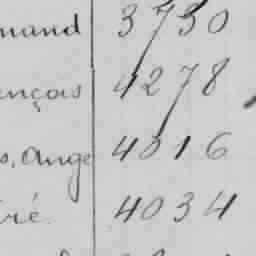 mand 3730
ençois 4278
s, Ange 4016
ré 4034